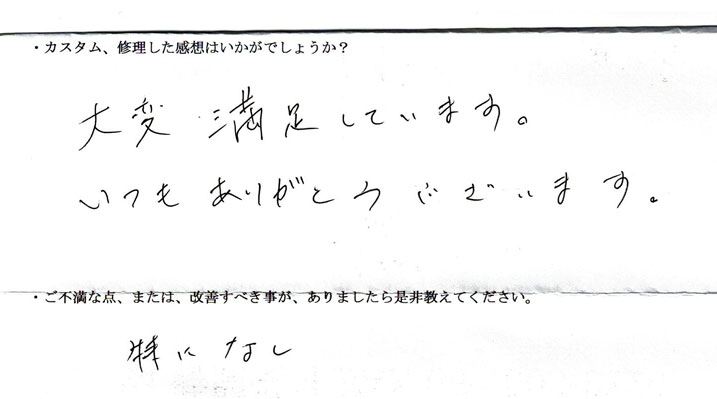 ・カスタム、修理した感想はいかがでしょうか？
大変満足しています。
いつもありがとうございます。
・ご不満な点、または、改善すべき事が、ありましたら是非教えてください。
特になし